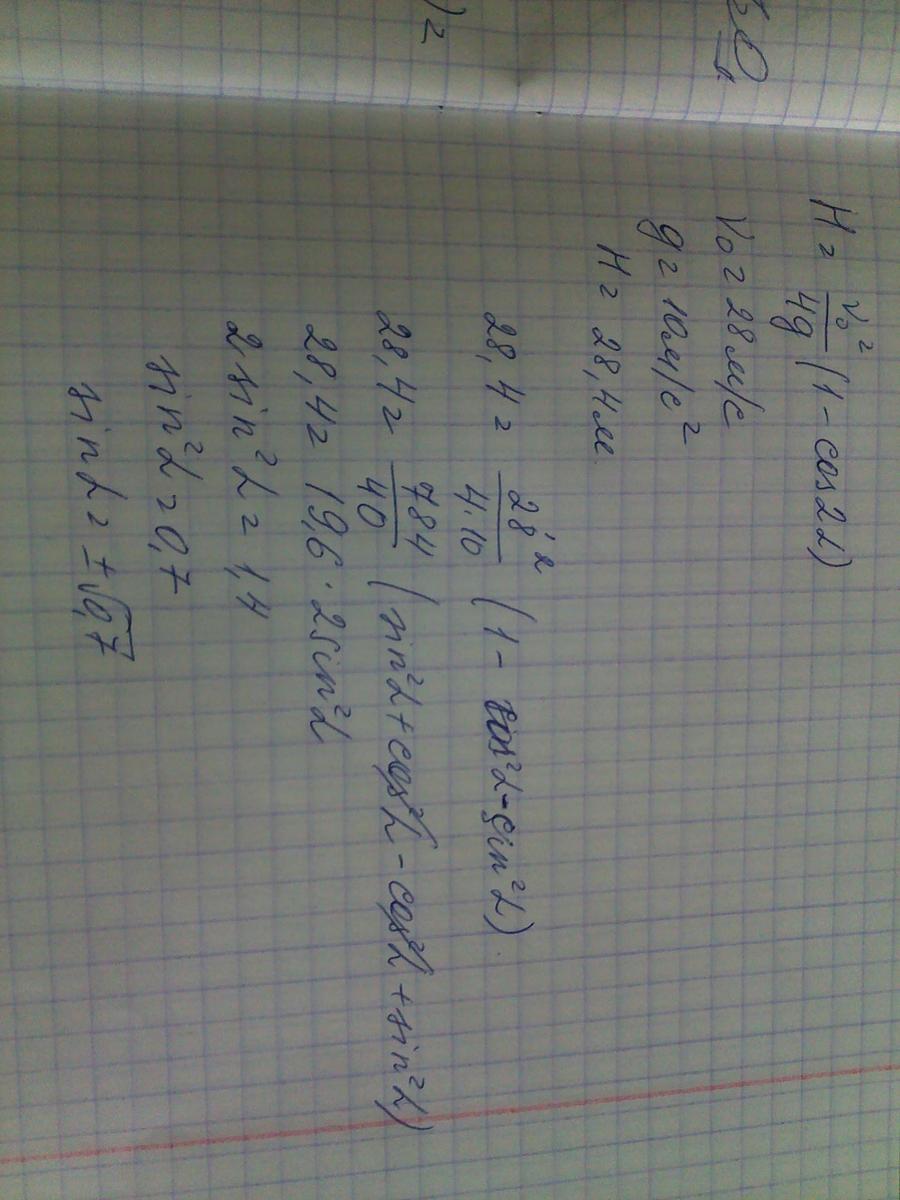 H = v₀²/4g (1 - cos2α)
v₀ = 28 м/с
g = 10 м/с²
H = 28,4 м
28,4 = 28²/4·10 (1 - cos²α - sin²α)
28,4 = 784/40 (sin²α + cos²α - cos²α + sin²α)
28,4 = 19,6 · 2sin²α
2sin²α = 1,4
sin²α = 0,7
sinα = ±√0,7